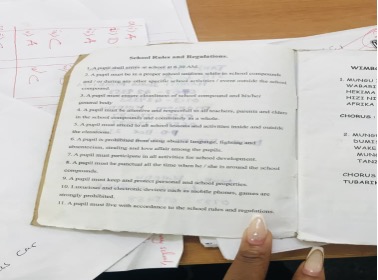 School Rules and Regulations
1. A pupil shall arrive at school at
2. A pupil must be in a proper school uniform while in school compounds
and / or during any other specific school activities / events outside the school
compound.
3. A pupil must ensure cleanliness of school compound and his/her
general body.
4. A pupil must be obedient and respectful to all teachers, parents and elders
in the school community and community as a whole.
5. A pupil must attend to all school lessons and activities inside and outside
the classroom.
6. A pupil is prohibited from using abusive language, fighting and
absenteeism, stealing and love affair among the pupils.
7. A pupil must participate in all activities for school development.
8. A pupil must be punctual all the time when he / she is around the school
compounds.
9. A pupil must keep and protect personal and school properties.
10. Luxurious and electronic devices such as mobile phones, games are
strongly prohibited.
11. A pupil must live with accordance to the school rules and regulations.
WIMBO
1. MUNGU
WABARI
HEKIMA
HIZI NI
AFRIKA
CHORUS :
2. MUNGU
DUMIS
WAKE
MUN
TANZ
CHORUS
TUBARIK